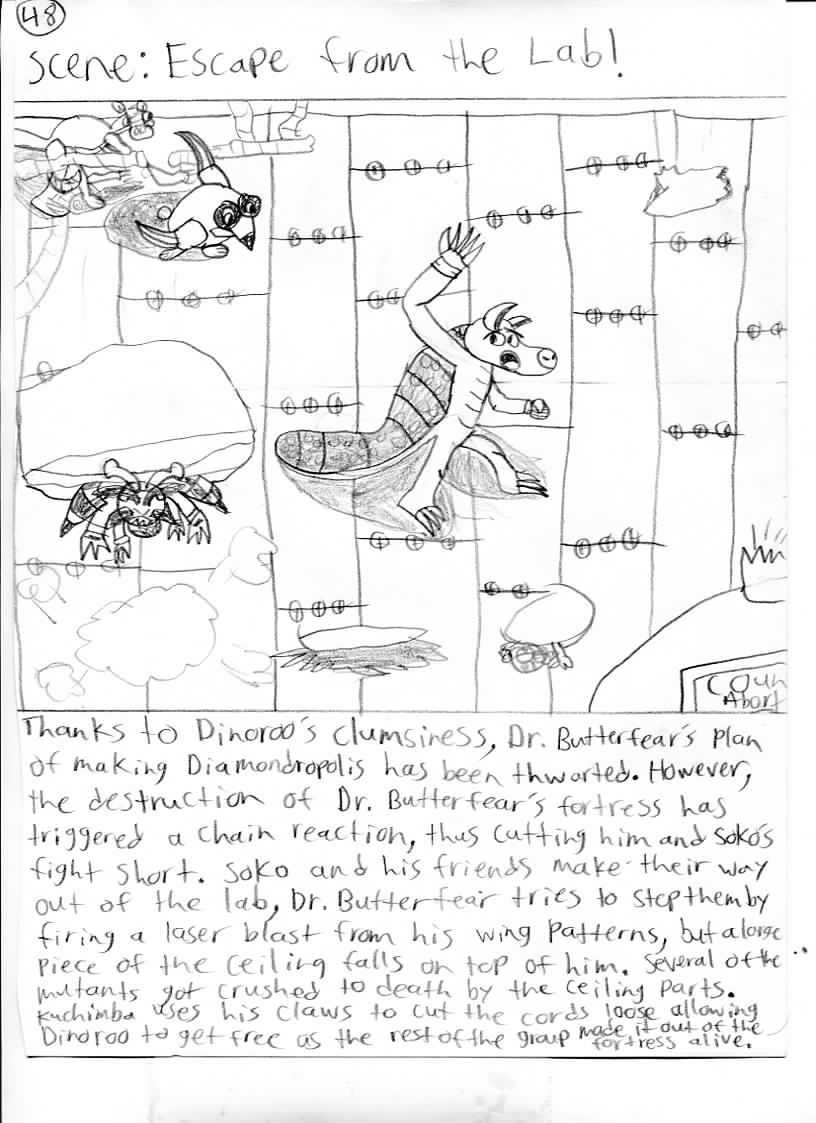 48
Scene: Escape from the Lab!
Coun
Abort
Thanks to Dinoroo's clumsiness, Dr. Butterfear's plan
of making Diamondropolis has been thworted. However,
the destruction of Dr. Butterfear's fortress has
triggered a chain reaction, thus cutting him and Soko's
fight short. Soko and his friends make their way
out of the lab, Dr. Butterfear tries to stop them by
firing a laser blast from his wing patterns, but a large
piece of the ceiling falls on top of him. Several of the
mutants got crushed to death by the ceiling parts.
Kuchimba uses his claws to cut the cords loose allowing
Dinoroo to get free as the rest of the group made it out of the
fortress alive.